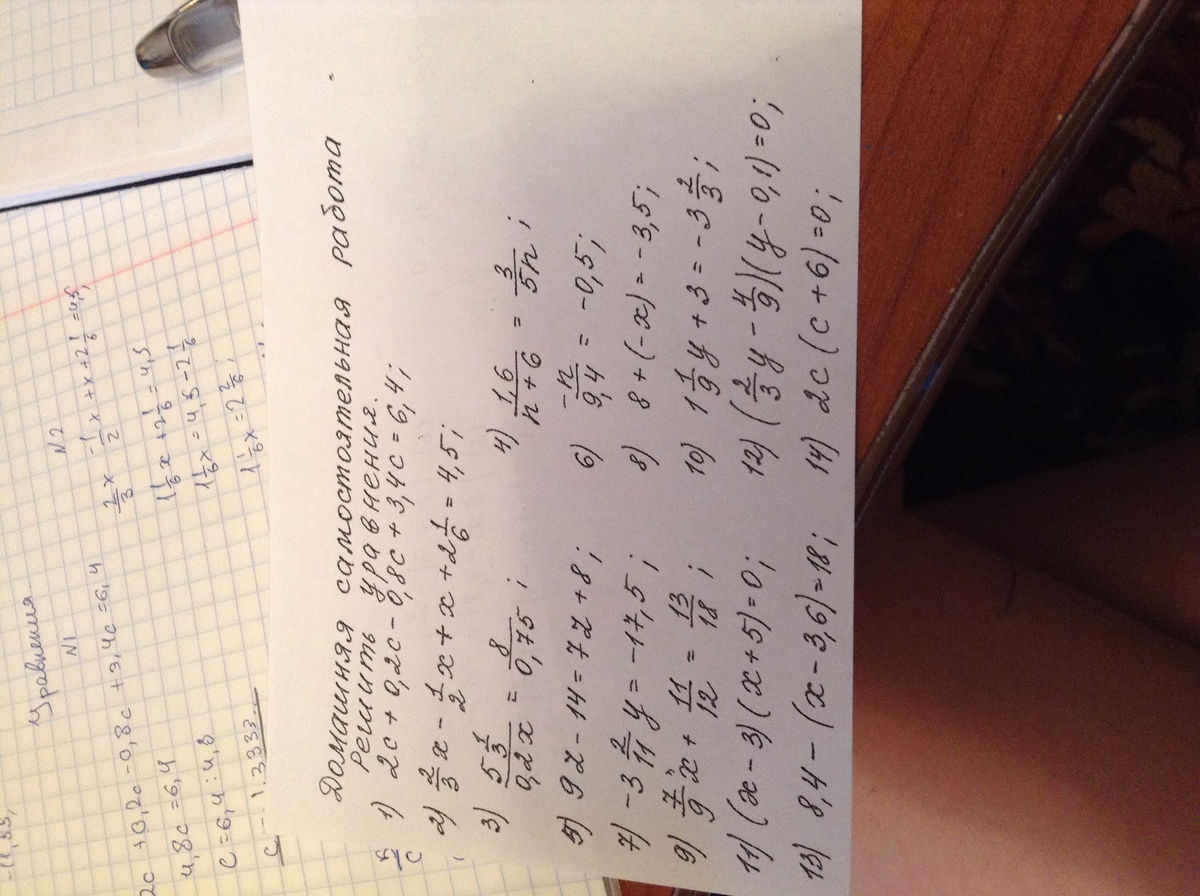 Уравнения
N1
2c + 0,2c - 0,8c + 3,4c = 6,4
4,8c = 6,4
c = 6,4 : 4,8
N2
2/3 x - 1/2 x + x + 2 1/6 = 4,5;
1 1/6 x + 2 1/6 = 4,5
1 1/6 x = 4,5 - 2 1/6
1 1/6 x = 2 2/6;
Домашняя самостоятельная работа
Решить уравнения.
1) 2c + 0,2c - 0,8c + 3,4c = 6,4;
2) 2/3 x - 1/2 x + x + 2 1/6 = 4,5;
3) 5 1/3 / 0,2x = 8 / 0,75 ; 4) 1,6 / n + 6 = 3 / 5n ;
5) 9z - 14 = 7z + 8; 6) -n / 9,4 = -0,5;
7) -3 2/11 y = -17,5; 8) 8 + (-x) = -3,5;
9) 7/9 x + 11/12 = 13/18 ; 10) 1 1/9 y + 3 = -3 2/3 ;
11) (x - 3)(x + 5) = 0; 12) (2/3 y - 4/9)(y - 0,1) = 0;
13) 8,4 - (x - 3,6) = 18; 14) 2c (c + 6) = 0;